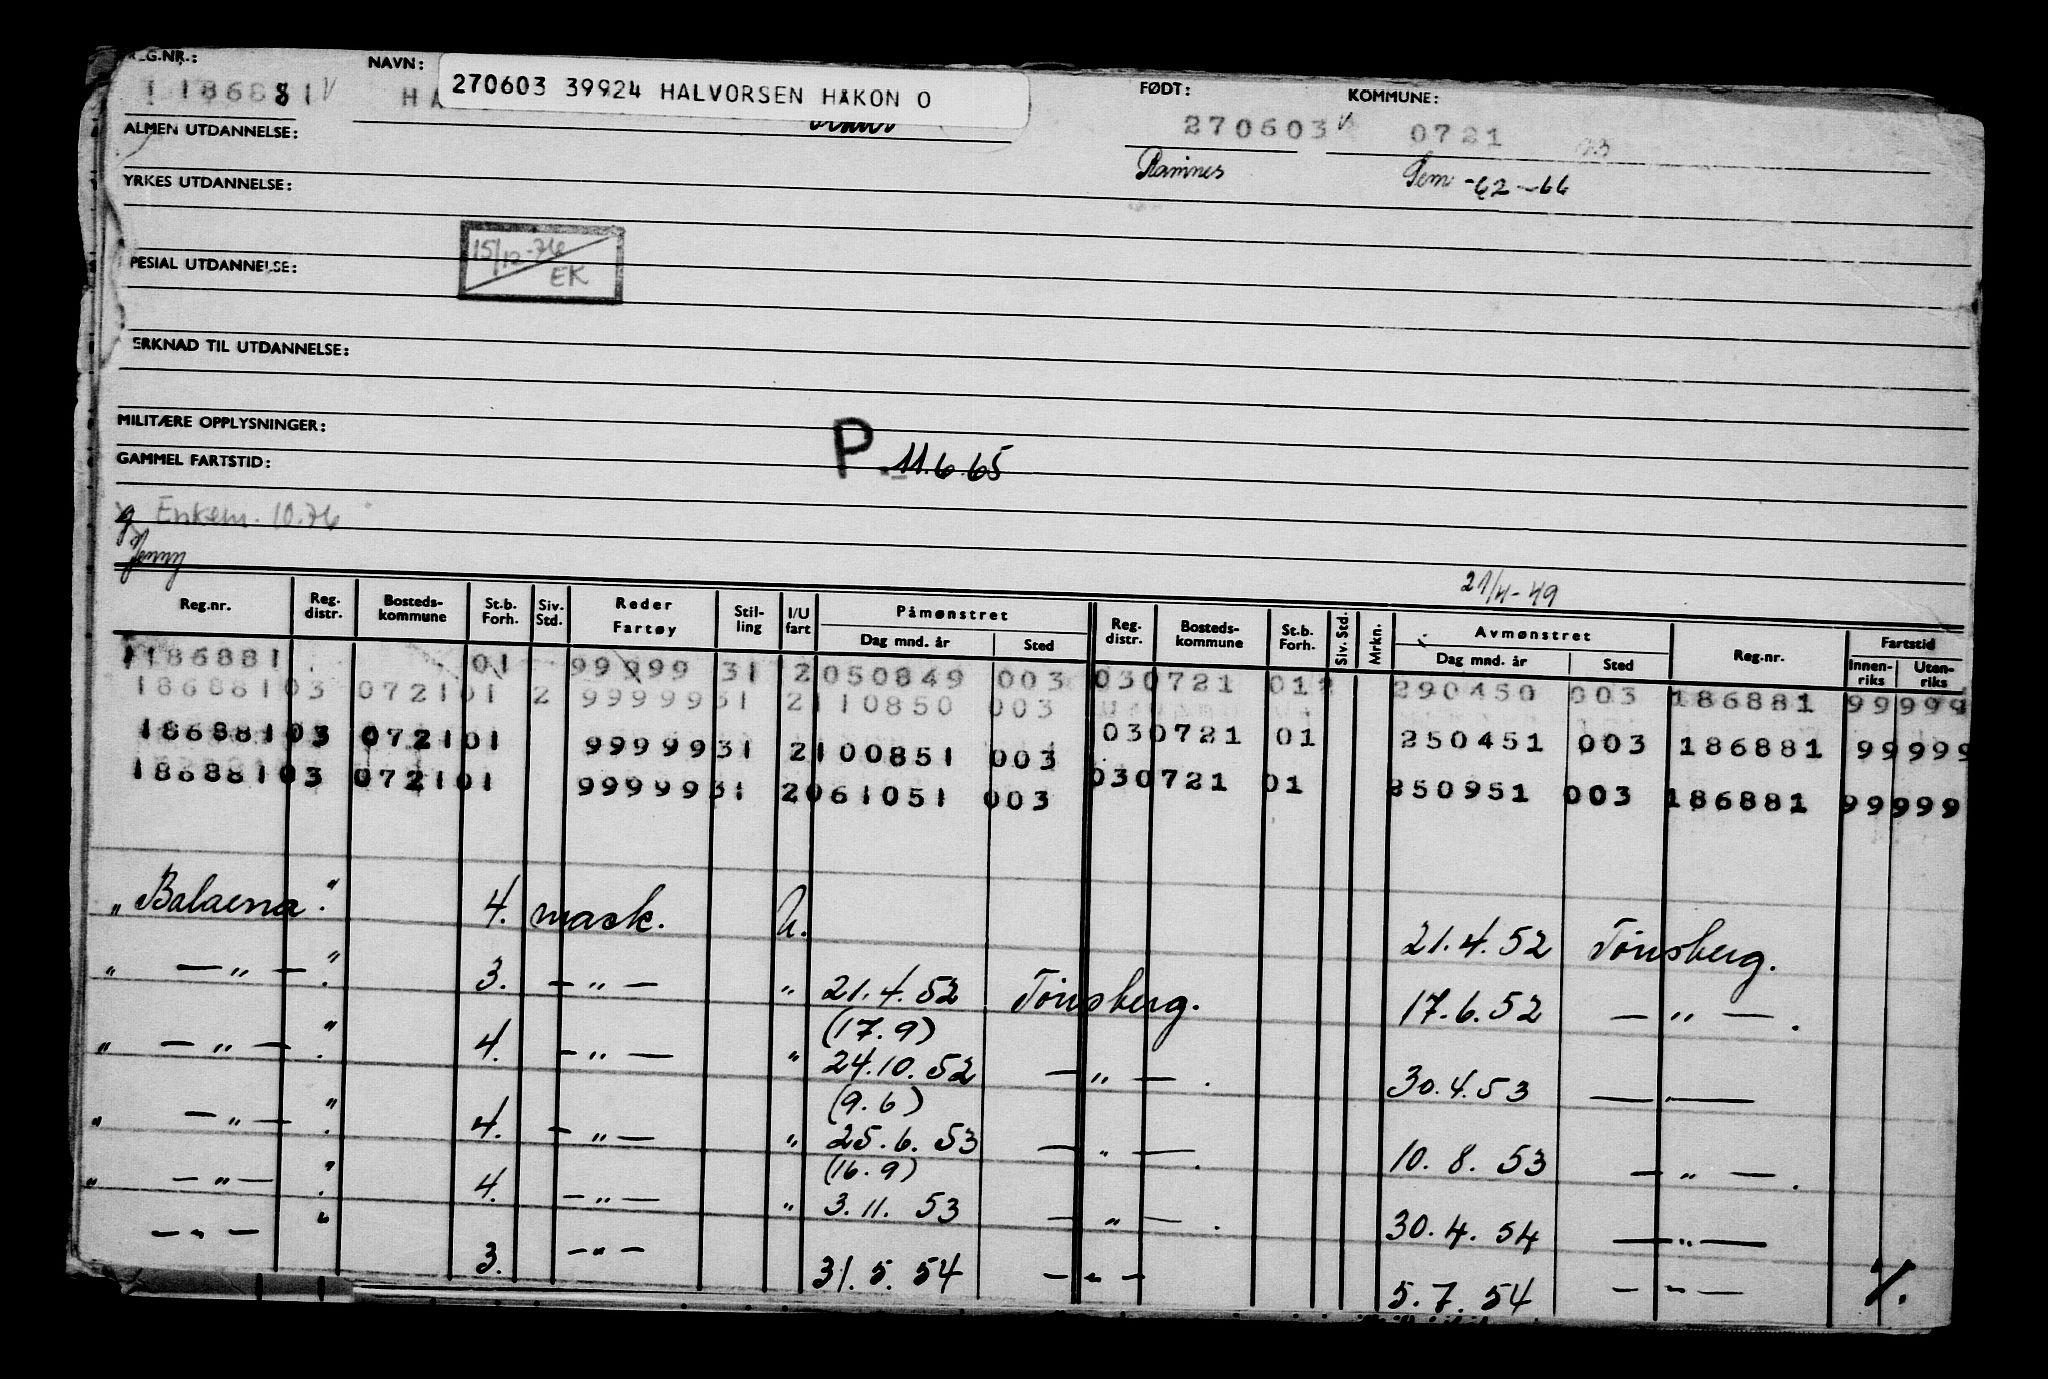 REG.NR.: NAVN: FØDT: KOMMUNE:
1186881 V HA 270603 39924 HALVORSEN HÅKON O 270603 V 0721
ALMEN UTDANNELSE:
Ramnes Sem -62-66
YRKES UTDANNELSE:
15/12-76
EK
PESIAL UTDANNELSE:
ERKNAD TIL UTDANNELSE:
MILITÆRE OPPLYSNINGER:
P. 11.6.65
GAMMEL FARTSTID:
g Enkem. 10.76
21/4-49
Reg.nr. Reg. distr. Bosteds-kommune St.b. Forh. Siv. Std. Reder Fartøy Stil-ling I/U fart Påmønstret Dag mnd. år Sted Reg. distr. Bosteds-kommune St.b. Forh. Siv. Std. Mrkn. Avmønstret Dag mnd. år Sted Reg.nr. Fartstid Innen-riks Uten-riks
1186881 01 99999 31 2 050849 003 03 0721 01 2 290450 003 186881 99999
186881 03 0721 01 2 99999 31 2 110850 003
186881 03 0721 01 99999 31 2 100851 003 03 0721 01 250451 003 186881 99999
186881 03 0721 01 99999 31 2 061051 003 03 0721 01 250951 003 186881 99999
"Balaena". 4. mask. U. 21.4.52 Tönsberg.
" — " — ". 3. — " — " 21.4.52 Tönsberg. 17.6.52 — " — .
(17.9)
" — " — ". 4. — " — " 24.10.52 — " — . 30.4.53 — " —
(9.6)
" — " — ". 4. — " — " 25.6.53 — " — . 10.8.53 — " — .
(16.9)
" — " — ". 4. — " — " 3.11.53 — " — . 30.4.54 — " —
— " — " 3. — " — 31.5.54 — " — 5.7.54 — " — ./.